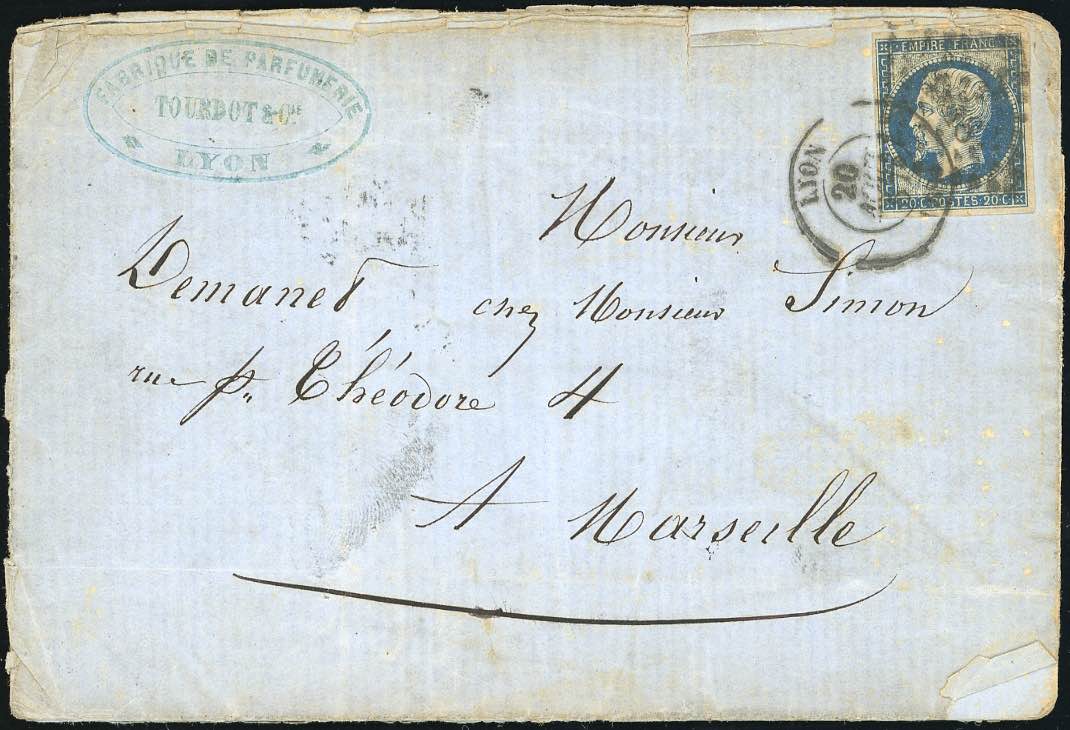 FABRIQUE DE PARFUMERIE
TOURDOT & Cie
LYON
EMPIRE FRANC
20·C·POSTES·20·C
LYON
20
Monsieur
Demanet chez Monsieur Simon
rue pte Théodore 4
A Marseille